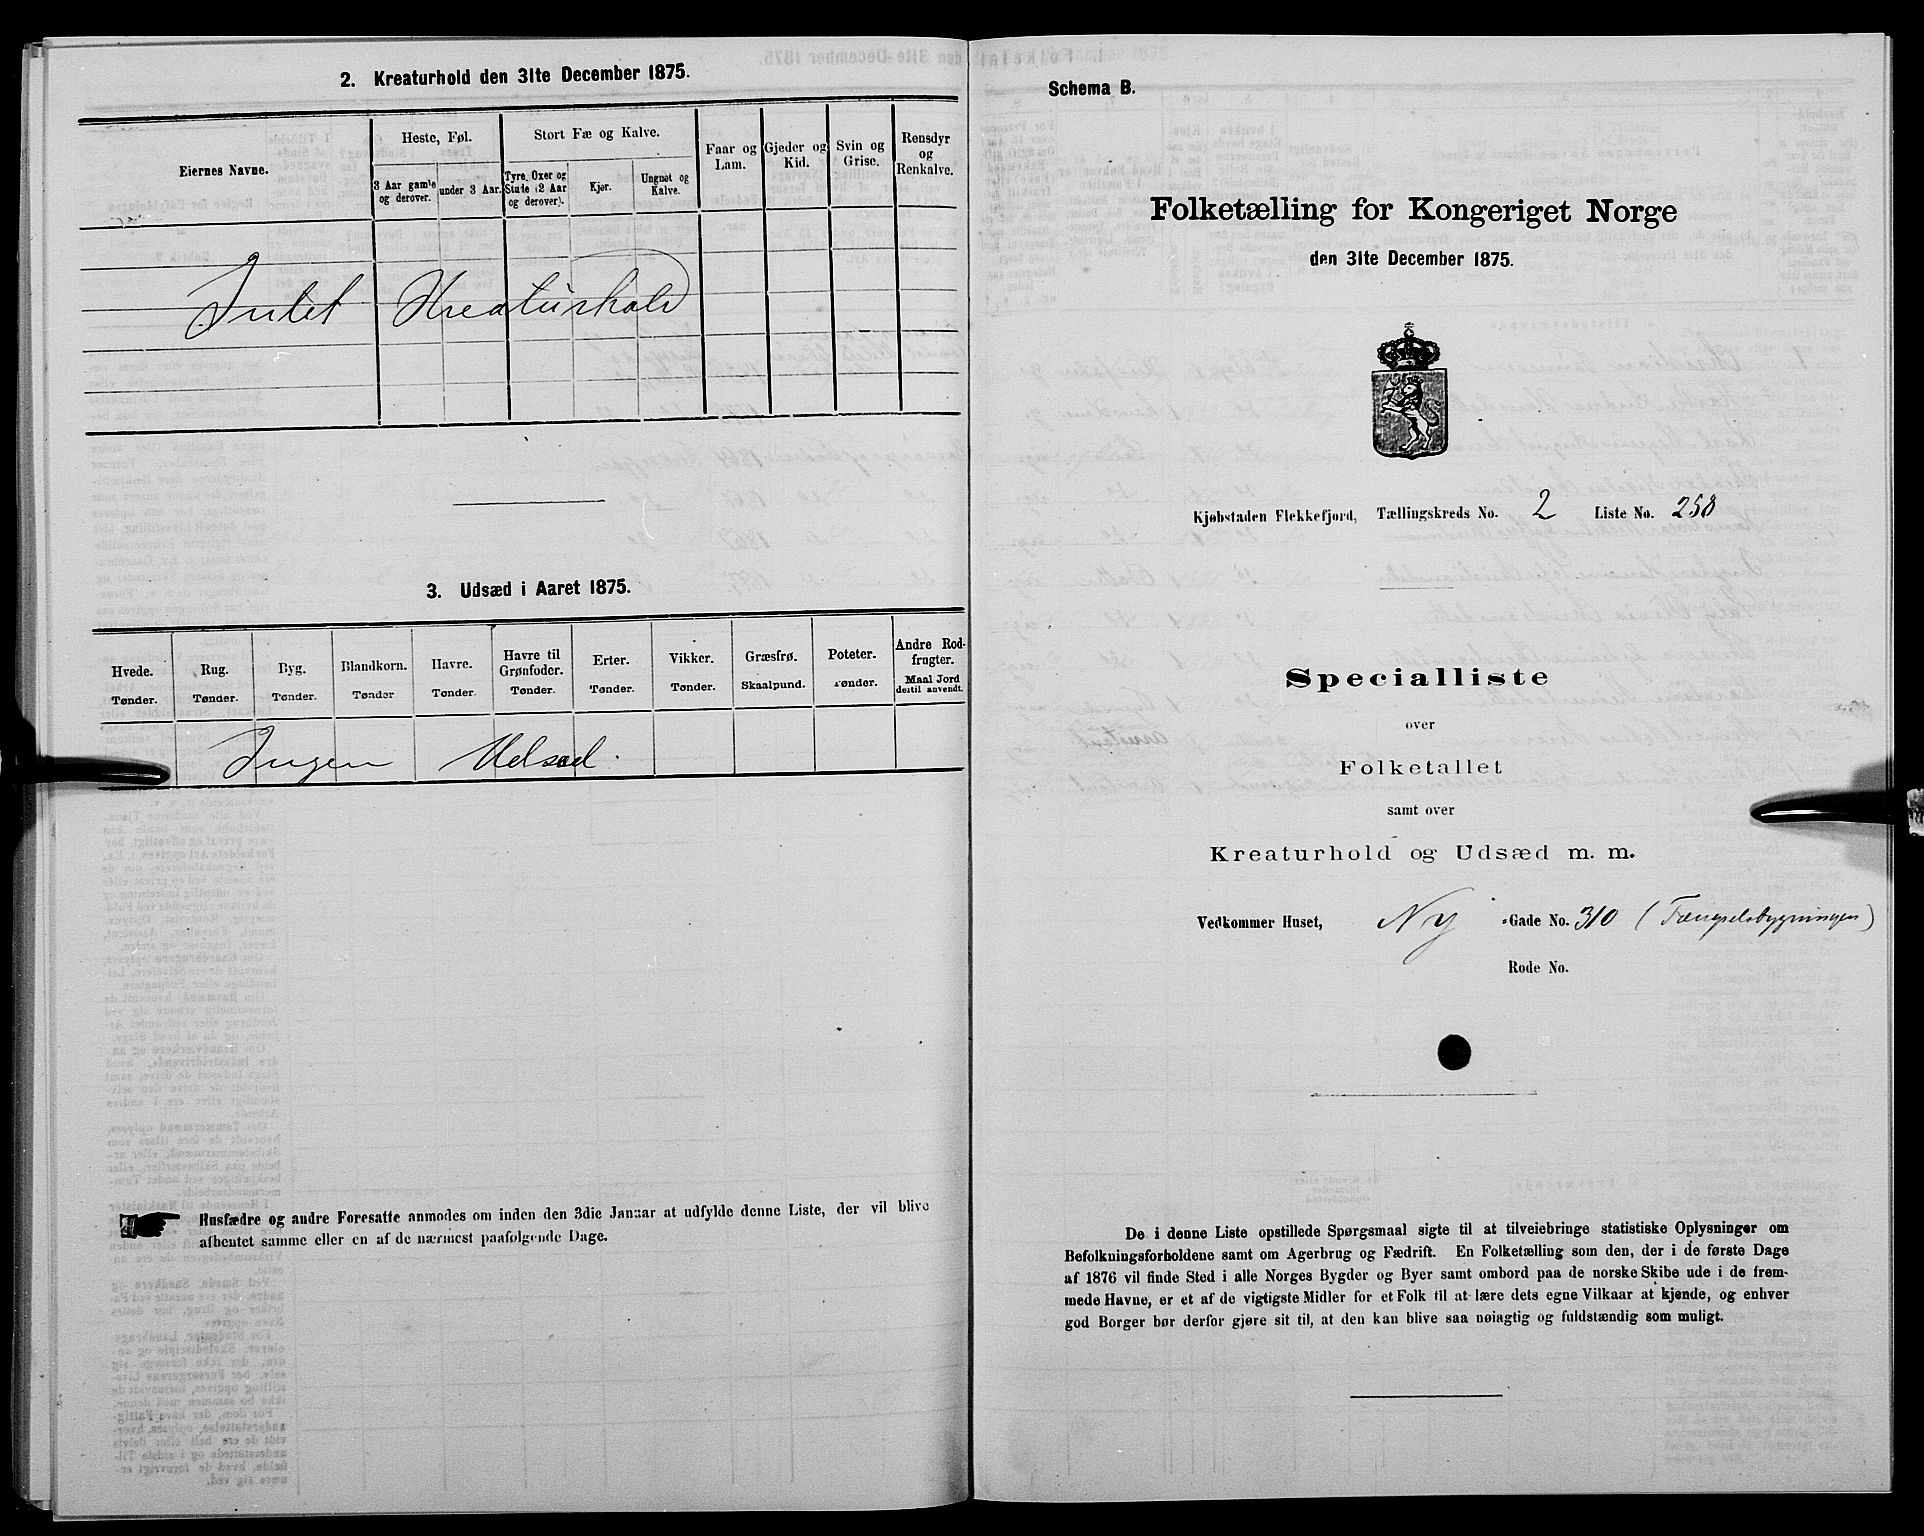 2. Kreaturhold den 31te December 1875.
Eiernes Navne.
Heste, Føl.
Stort Fæ og Kalve.
Faar og Lam.
Gjeder og Kid.
Svin og Grise.
Rensdyr og Renkalve.
3 Aar gamle og derover.
under 3 Aar.
Tyre, Oxer og Stude (2 Aar og derover).
Kjør.
Ungnøt og Kalve.
Intet Kreaturhold
3. Udsæd i Aaret 1875.
Hvede. Rug. Byg. Blandkorn. Havre. Havre til Grønfoder. Erter. Vikker. Græsfrø. Poteter. Andre Rodfrugter.
Tønder. Tønder. Tønder. Tønder Tønder. Tønder. Tønder. Tønder. Skaalpund. Tønder. Maal Jord dertil anvendt.
Ingen Udsæd.
Husfædre og andre Foresatte anmodes om inden den 3die Januar at udfylde denne Liste, der vil blive
afhentet samme eller en af de nærmest paafølgende Dage.
Schema B.
Folketælling for Kongeriget Norge
den 31te December 1875.
Kjøbstaden Flekkefjord, Tællingskreds No. 2 Liste No. 258
Specialliste
over
Folketallet
samt over
Kreaturhold og Udsæd m. m.
Vedkommer Huset, Ny -Gade No. 310 (Fængselsbygningen)
Rode No.
De i denne Liste opstillede Spørgsmaal sigte til at tilveiebringe statistiske Oplysninger om
Befolkningsforholdene samt om Agerbrug og Fædrift. En Folketælling som den, der i de første Dage
af 1876 vil finde Sted i alle Norges Bygder og Byer samt ombord paa de norske Skibe ude i de frem-
mede Havne, er et af de vigtigste Midler for et Folk til at lære dets egne Vilkaar at kjende, og enhver
god Borger bør derfor gjøre sit til, at den kan blive saa nøiagtig og fuldstændig som muligt.